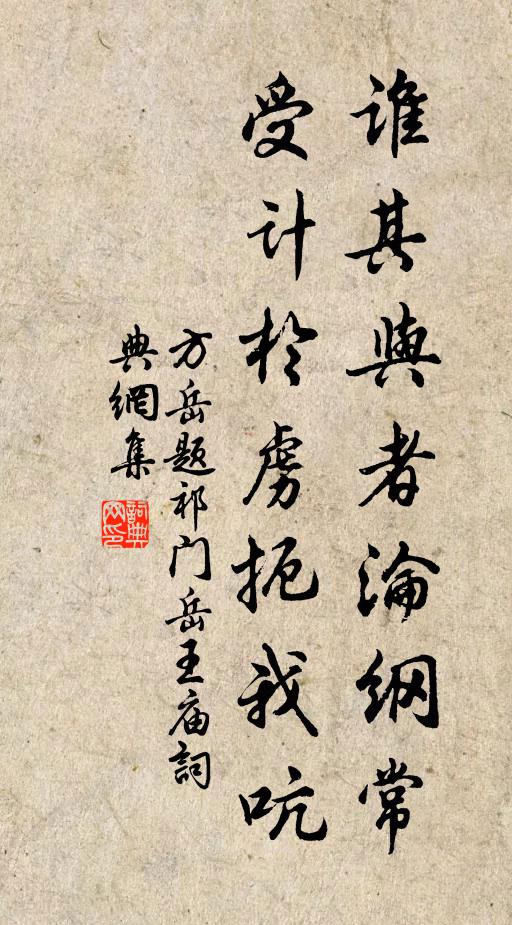 谁其与者沦纲常
受计于虏扼我吭
方岳题祁门岳王庙词
典网集
词典网印